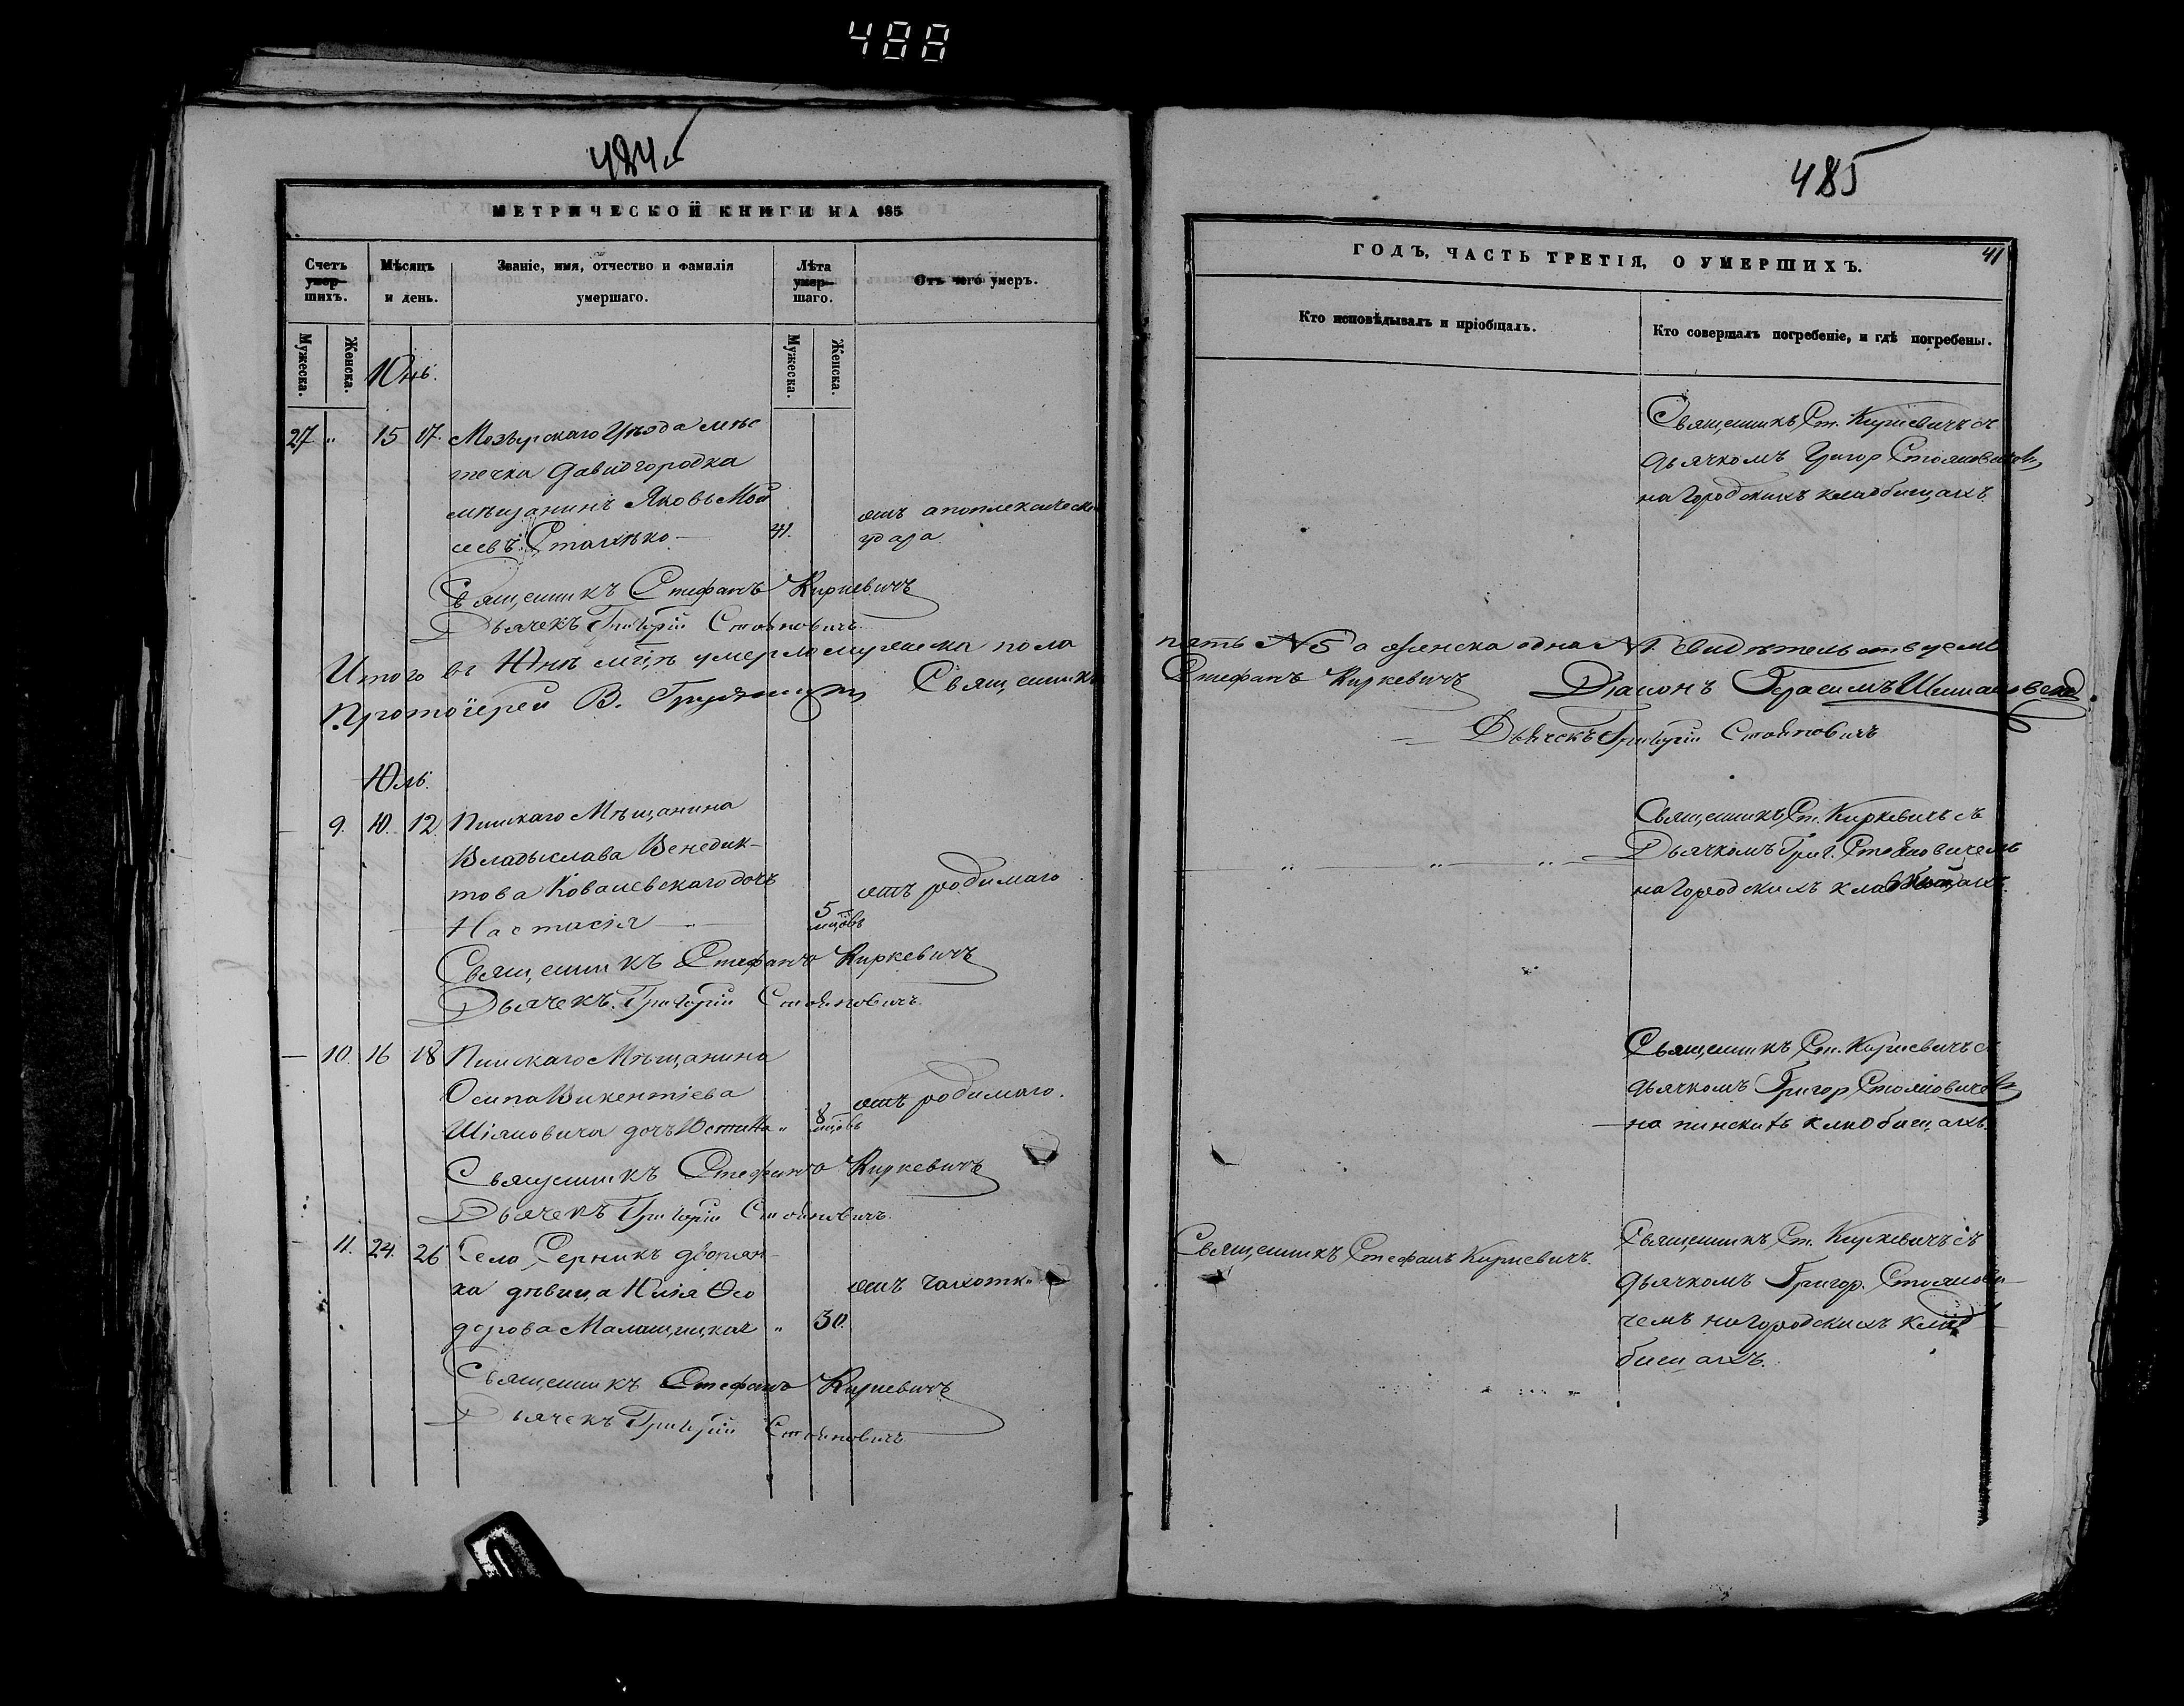 488
484
МЕТРИЧЕСКОЙ КНИГИ НА 185
Счетъ умер-шихъ.
Мѣсяцъ и день.
Званіе, имя, отчество и фамилія умершаго.
Лѣта умер-шаго.
Отъ чего умеръ.
Мужеска.
Женска.
Мужеска.
Женска.
Юнь.
27 " 15 17. Мозырскаго Уѣзда мѣс
течка Давидгородка
мѣщанинъ Яковъ Мой
сеевъ
отъ апоплексическ
удара
Священникъ Стефанъ Киркевичъ
Дьячекъ Григорій Стояновичъ
Итого въ Юнѣ мцѣ умерло мужеска пола
Протоіерей В. Священникъ
Юль.
9. 10. 12. Пинскаго Мѣщанина
Владыслава Венедик-
това Ковалевскаго дочь
Настасія
5 мцовъ
отъ родимаго
Священникъ Стефанъ Киркевичъ
Дьячекъ Григорій Стояновичъ
10. 16 18 Пинскаго Мѣщанина
Осипа Викентіева
дочь Юстина "
8 мцовъ
отъ родимаго.
Священникъ Стефанъ Киркевичъ
Дьячекъ Григорій Стояновичъ
11. 24. 26 Села Серникъ дворян-
ка дѣвица Юлія Ѳео
дорова " 30.
отъ чахотк
Священникъ Стефанъ Киркевичъ
Дьячекъ Григорій Стояновичъ
485
ГОДЪ, ЧАСТЬ ТРЕТІЯ, О УМЕРШИХЪ.
41
Кто исповѣдывалъ и пріобщалъ.
Кто совершалъ погребеніе, и гдѣ погребены.
Священникъ Ст. Киркевичъ съ
дьячкомъ Григор Стояновичемъ
на городскихъ кладбищахъ
пять №5 а женска одна №1. Свидѣтельствуемъ
Стефанъ Киркевичъ Діаконъ Герасимъ
Дьячекъ Григорій Стояновичъ
Священникъ Ст. Киркевичъ съ
Дьячкомъ Григ. Стояновичемъ
на городскихъ кладбищахъ.
Священникъ Ст. Киркевичъ съ
дьячкомъ Григор Стояновичемъ
на пинскихъ кладбищахъ.
Священникъ Стефанъ Киркевичъ.
Священникъ Ст. Киркевичъ съ
дьячкомъ Григор. Стоянови-
чемъ на городскихъ клад
бищахъ.